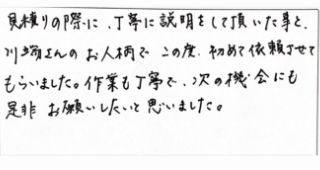 見積りの際に、丁寧に説明をして頂いた事と、
川端さんのお人柄でこの度、初めて依頼させて
もらいました。作業も丁寧で、次の機会にも
是非お願いしたいと思いました。